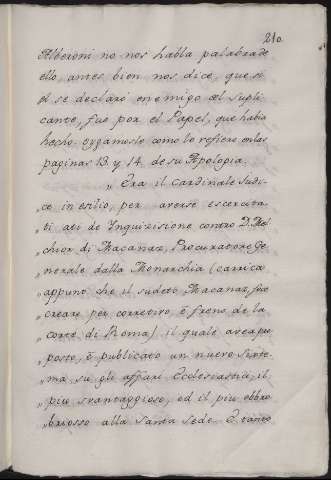 210
Alberoni no nos habla palabra de
ello, antes bien nos dice, que si
el se declarò enemigo del Supli-
cante, fue por el Papel, que havia
hecho. oygamosle como lo refiere en las
paginas 13. y 14. de su Apologia.
„ Era il Cardinale Iudi-
„ ce in esilio, per averse escercita-
„ ti ati de Inquizisione contro D. Mel-
„ chior di Macanaz, Procuratore Ge-
„ nerale dalla Monarchia (carrica
„ appunto che il sudeto Macanaz fece
„ creare per corretivo, è freno de la
„ corte di Roma) il quale avea pro-
„ posto, è publicato un nuevo Siste-
„ ma su gli affari Ecclesiastici, il
„ piu svantaggioso, ed il piu obbro-
„ briosso alla Santa Sede. E tanto